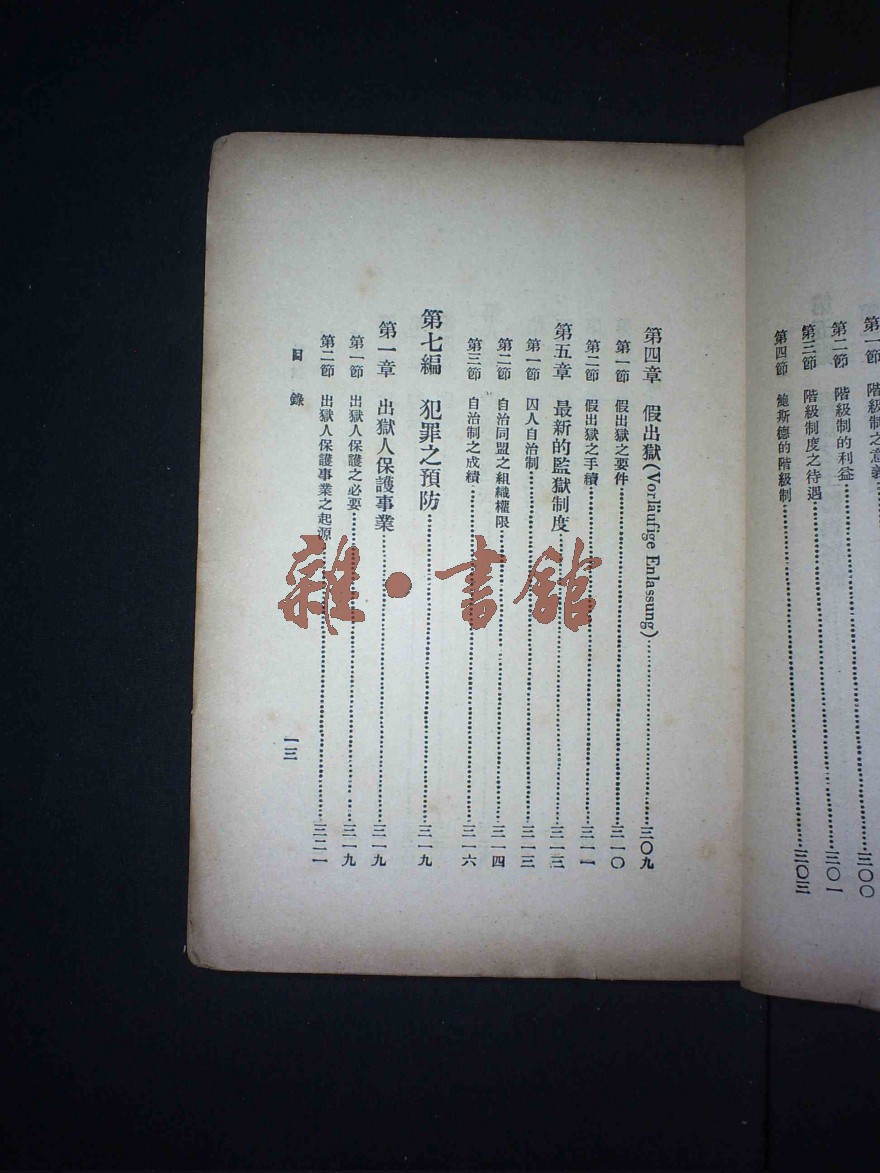 第一節　階級制之意義……三〇〇
第二節　階級制的利益……三〇一
第三節　階級制度之待遇……三〇二
第四節　鮑斯德的階級制……三〇三
第四章　假出獄(Vorläufige Enlassung)……三〇九
第一節　假出獄之要件……三一〇
第二節　假出獄之手續……三一一
第五章　最新的監獄制度……三一三
第一節　囚人自治制……三一三
第二節　自治同盟之組織權限……三一四
第三節　自治制之成績……三一六
第七編　犯罪之預防……三一九
第一章　出獄人保護事業……三一九
第一節　出獄人保護之必要……三一九
第二節　出獄人保護事業之起源……三二一
目錄　一三
雜·書館